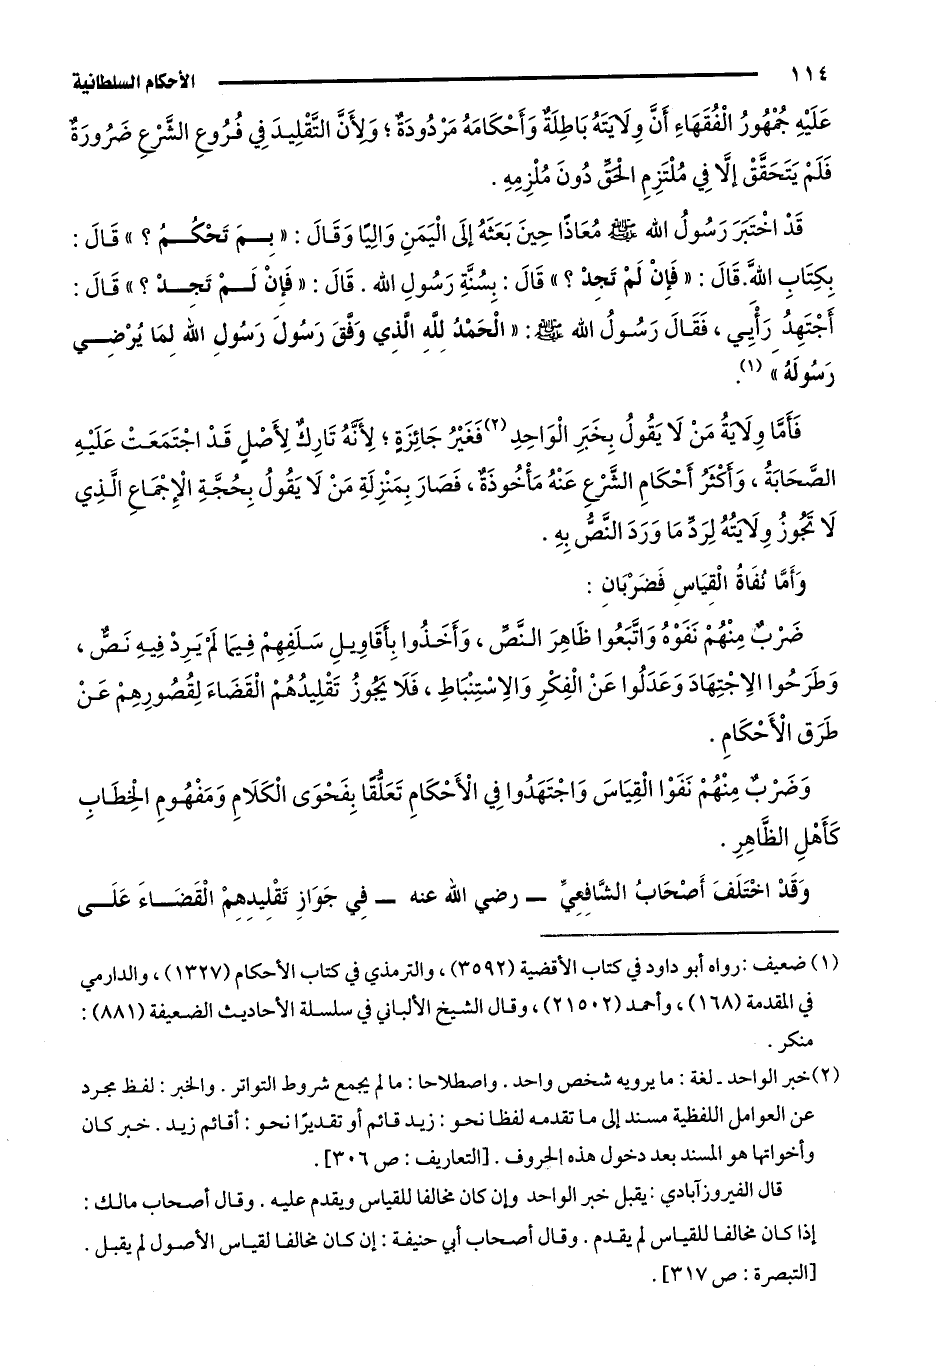 ١١٤ الأحكام السلطانية
عَلَيْهِ جُمْهُورُ الْفُقَهَاءِ أَنَّ وِلَايَتَهُ بَاطِلَةٌ وَأَحْكَامَهُ مَرْدُودَةٌ ؛ وَلِأَنَّ التَّقْلِيدَ فِي فُرُوعِ الشَّرْعِ ضَرُورَةٌ
فَلَمْ يَتَحَقَّقْ إِلَّا فِي مُلْتَزِمِ الْحَقِّ دُونَ مُلْزِمِهِ .
قَدْ اخْتَبَرَ رَسُولُ الله ﷺ مُعَاذًا حِينَ بَعَثَهُ إِلَى الْيَمَنِ وَالِيًا وَقَالَ : « بِـمَ تَحْكُـمُ ؟ » قَالَ :
بِكِتَابِ اللهِ. قَالَ : « فَإِنْ لَمْ تَجِدْ ؟ » قَالَ : بِسُنَّةِ رَسُولِ الله . قَالَ : « فَإِنْ لَـمْ تَجِـدْ ؟ » قَالَ :
أَجْتَهِدُ رَأْيِي ، فَقَالَ رَسُولُ الله ﷺ : « الْحَمْدُ للَّهِ الَّذِي وَفَّقَ رَسُولَ رَسُولِ الله لِمَا يُرْضِـي
رَسُولَهُ » (١).
فَأَمَّا وِلَايَةُ مَنْ لَا يَقُولُ بِخَبَرِ الْوَاحِدِ (٢) فَغَيْرُ جَائِزَةٍ ؛ لِأَنَّهُ تَارِكٌ لِأَصْلٍ قَدْ اجْتَمَعَتْ عَلَيْهِ
الصَّحَابَةُ ، وَأَكْثَرُ أَحْكَامِ الشَّرْعِ عَنْهُ مَأْخُوذَةٌ ، فَصَارَ بِمَنْزِلَةِ مَنْ لَا يَقُولُ بِحُجَّةِ الْإِجْمَاعِ الَّـذِي
لَا تَجُوزُ وِلَايَتُهُ لِرَدِّ مَا وَرَدَ النَّصُّ بِهِ .
وَأَمَّا نُفَاةُ الْقِيَاسِ فَضَرْبَانِ :
ضَرْبٌ مِنْهُمْ نَفَوْهُ وَاتَّبَعُوا ظَاهِرَ النَّصِّ ، وَأَخَذُوا بِأَقَاوِيلِ سَلَفِهِمْ فِيمَا لَمْ يَرِدْ فِيهِ نَصٌّ ،
وَطَرَحُوا الِاجْتِهَادَ وَعَدَلُوا عَنْ الْفِكْرِ وَالِاسْتِنْبَاطِ ، فَلَا يَجُوزُ تَقْلِيدُهُمْ الْقَضَاءَ لِقُصُورِهِمْ عَنْ
طَرَقِ الْأَحْكَامِ .
وَضَرْبٌ مِنْهُمْ نَفَوْا الْقِيَاسَ وَاجْتَهَدُوا فِي الْأَحْكَامِ تَعَلُّقًا بِفَحْوَى الْكَلَامِ وَمَفْهُومِ الْخِطَابِ
كَأَهْلِ الظَّاهِرِ .
وَقَدْ اخْتَلَفَ أَصْحَابُ الشَّافِعِيِّ ــ رضي الله عنه ــ فِي جَوَازِ تَقْلِيدِهِمْ الْقَضَـاءَ عَلَـى
(١) ضعيف : رواه أبو داود في كتاب الأقضية (٣٥٩٢) ، والترمذي في كتاب الأحكام (١٣٢٧) ، والدارمي
في المقدمة (١٦٨) ، وأحمد (٢١٥٠٢) ، وقال الشيخ الألباني في سلسلة الأحاديث الضعيفة (٨٨١) :
منكر .
(٢) خبر الواحد ـ لغة : ما يرويه شخص واحد . واصطلاحا : ما لم يجمع شروط التواتر . والخبر : لفظ مجرد
عن العوامل اللفظية مسند إلى ما تقدمه لفظا نحو : زيد قائم أو تقديرًا نحو : أقائم زيد . خبر كان
وأخواتها هو المسند بعد دخول هذه الحروف . [التعاريف : ص ٣٠٦] .
قال الفيروزآبادي : يقبل خبر الواحد وإن كان مخالفا للقياس ويقدم عليه . وقال أصحاب مالك :
إذا كان مخالفا للقياس لم يقدم . وقال أصحاب أبي حنيفة : إن كان مخالفا لقياس الأصول لم يقبل .
[التبصرة : ص ٣١٧] .